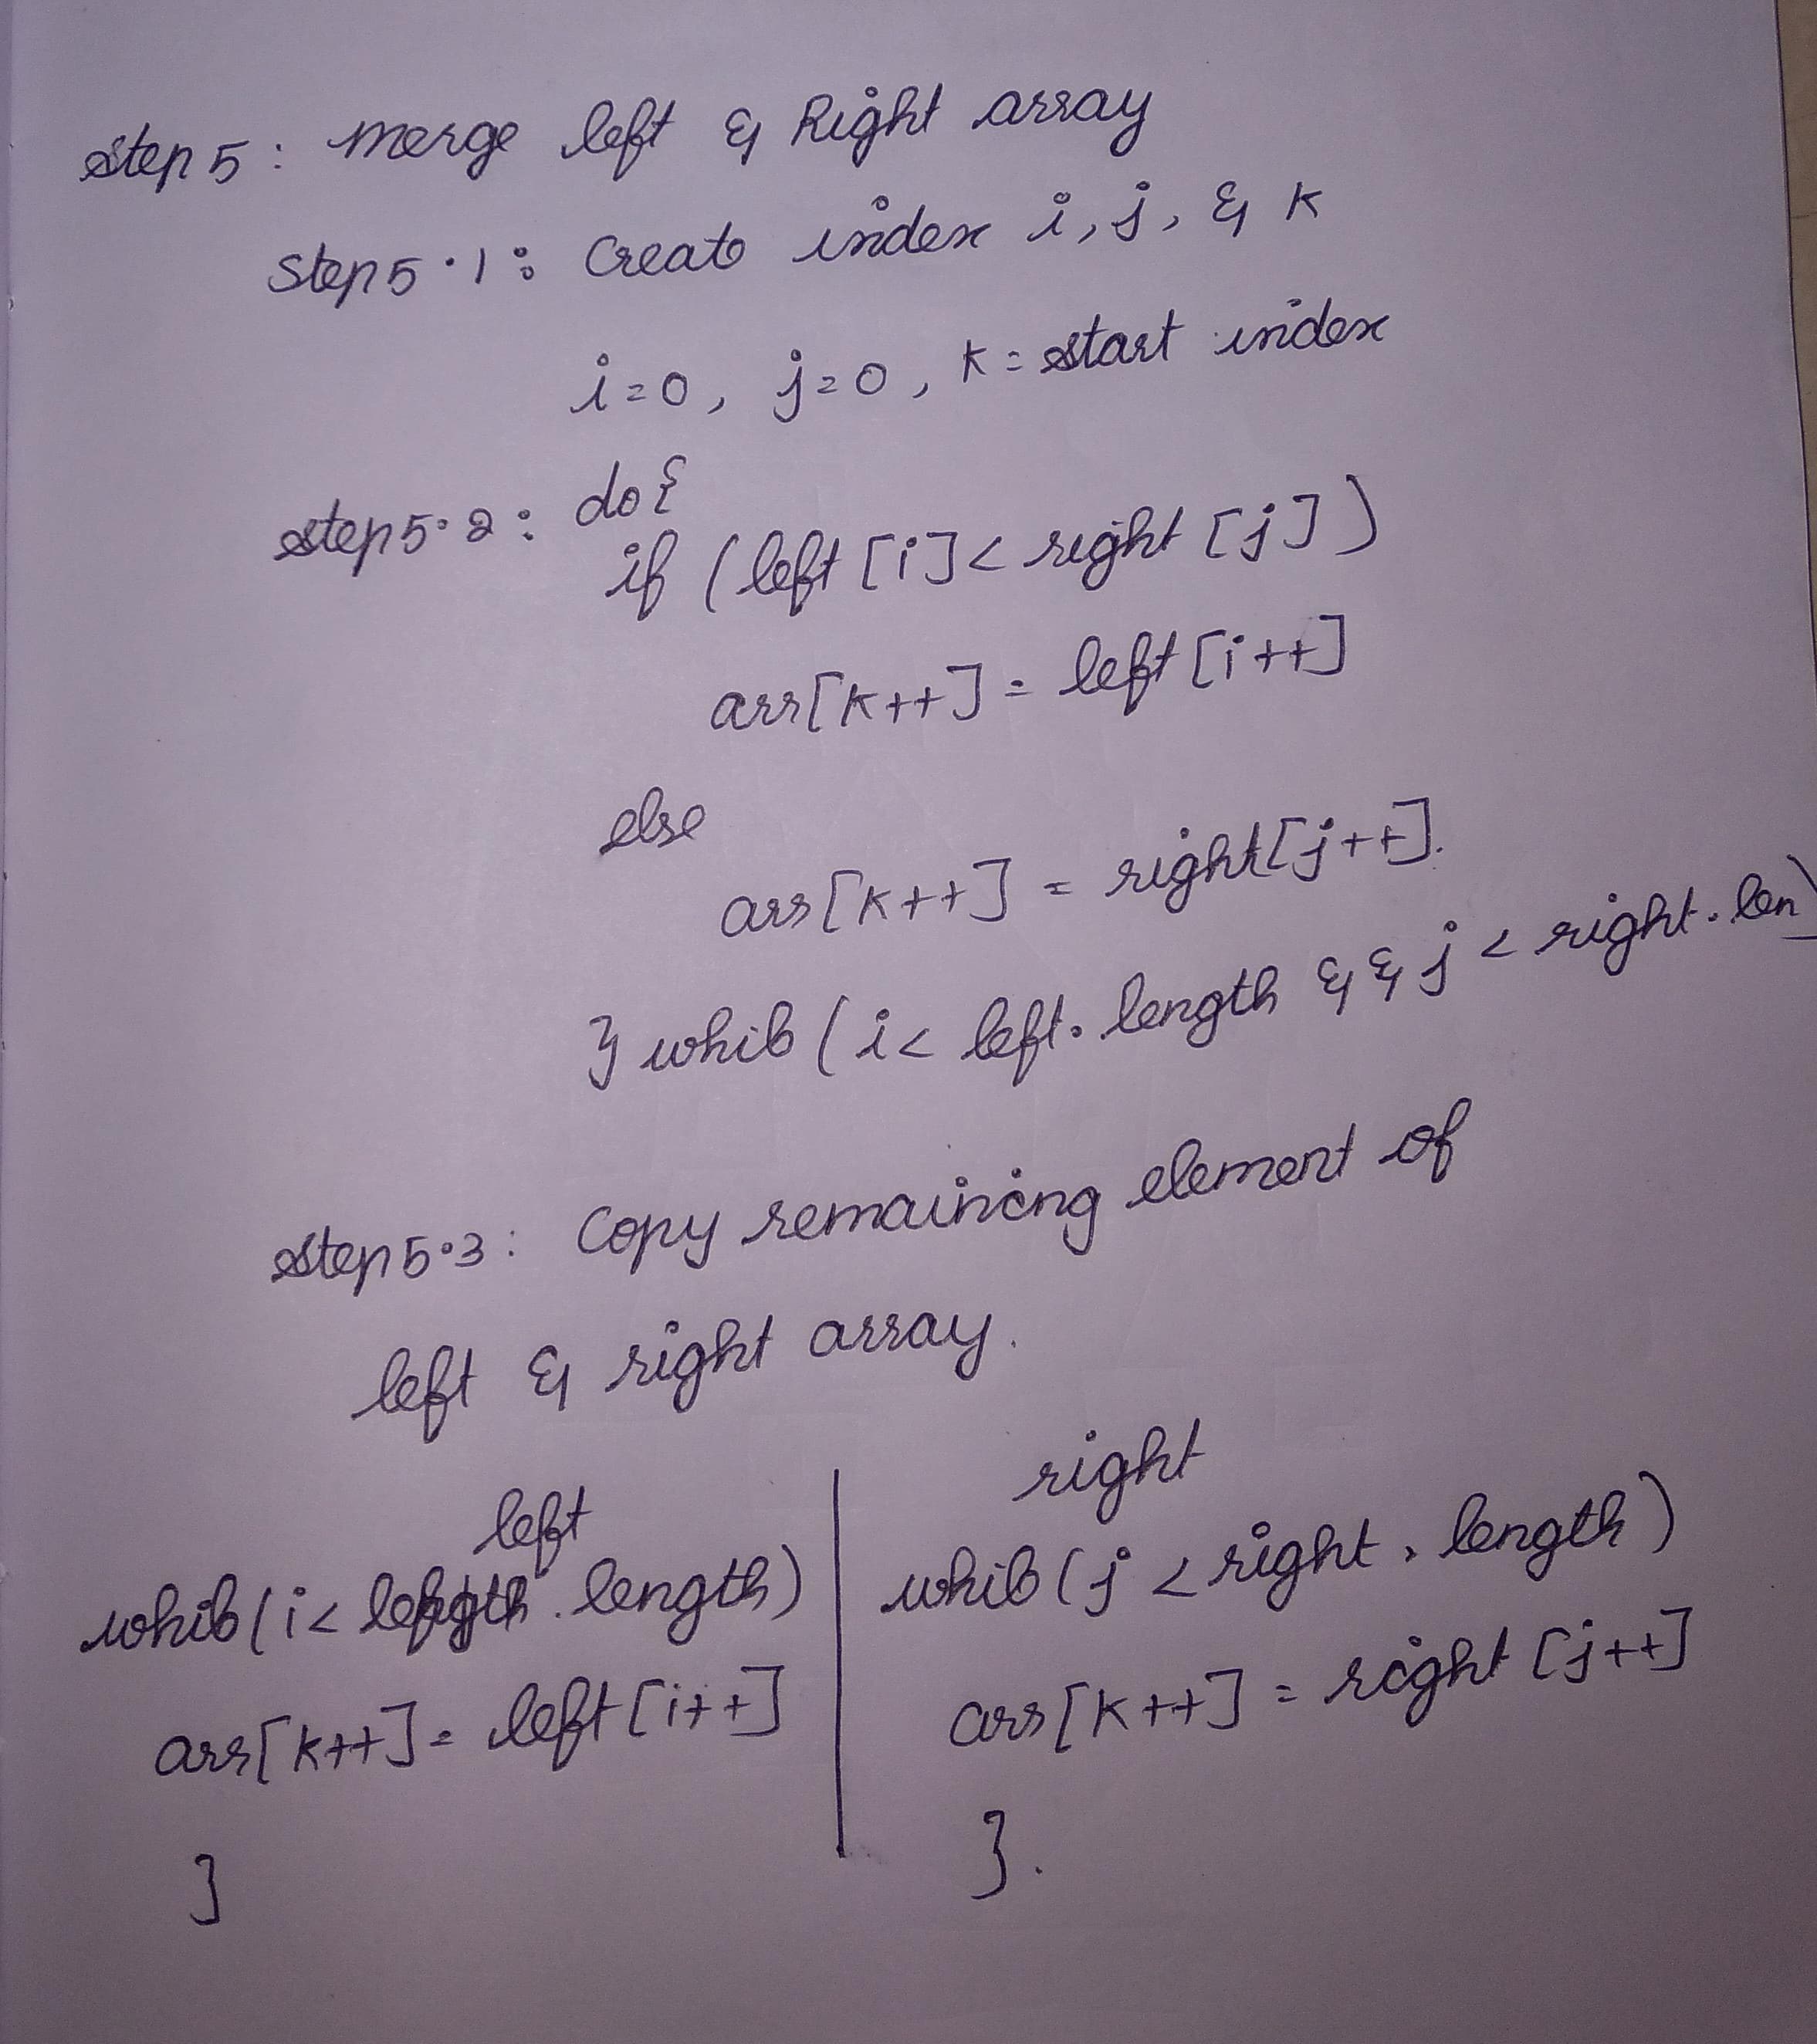 Step 5 : Merge left & Right array
Step 5.1 : Create index i, j, & k
i=0, j=0, k = start index
Step 5.2 : do {
if (left [i] < right [j])
arr[k++] = left [i++]
else
arr[k++] = right[j++].
} while (i < left.length && j < right.len)
Step 5.3 : Copy remaining element of
left & right array.
left
while (i < .length)
arr[k++] = left [i++]
}
right
while (j < right.length)
arr[k++] = right [j++]
}.